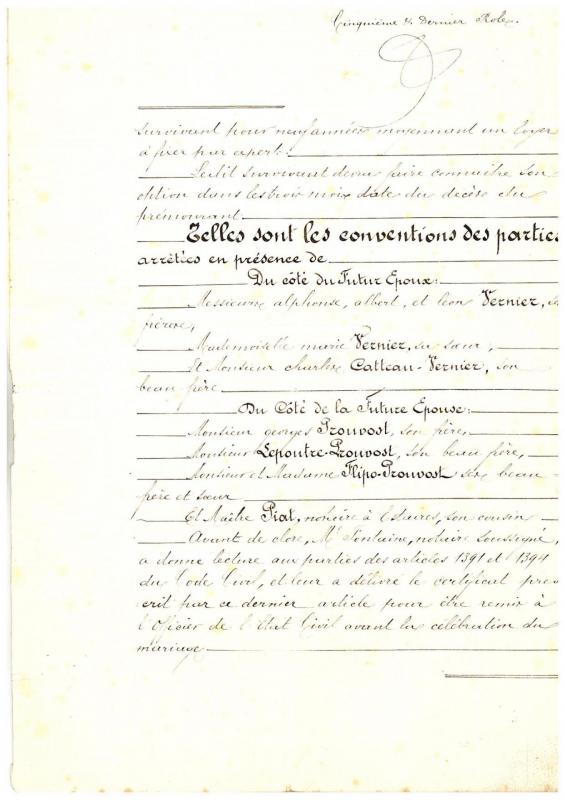 Cinquième & Dernier Role.
survivant pour neuf années moyennant un loyer
à fixer par expert.
Ledit survivant devra faire connaître son
option dans les trois mois date du décès du
prémourant
Telles sont les conventions des parties
arrêtées en présence de
Du côté du Futur Epoux:
Messieurs alphonse, albert, et léon Vernier, ses
frères,
Mademoiselle marie Vernier, sa sœur,
Et Monsieur charles Catteau-Vernier, son
beau frère
Du Côté de la Future Epouse:
Monsieur georges Prouvost, son frère,
Monsieur Lepoutre-Prouvost, son beau frère,
Monsieur et Madame Flipo-Prouvost ses beau-
frère et sœur
Et Maître Piat, notaire à Estaires, son cousin
Avant de clore, Me Fontaine, notaire soussigné,
a donné lecture aux parties des articles 1391 et 1394
du Code Civil, et leur a délivré le certificat pres
crit par ce dernier article pour être remis à
l'Officier de l'Etat Civil avant la célébration du
mariage